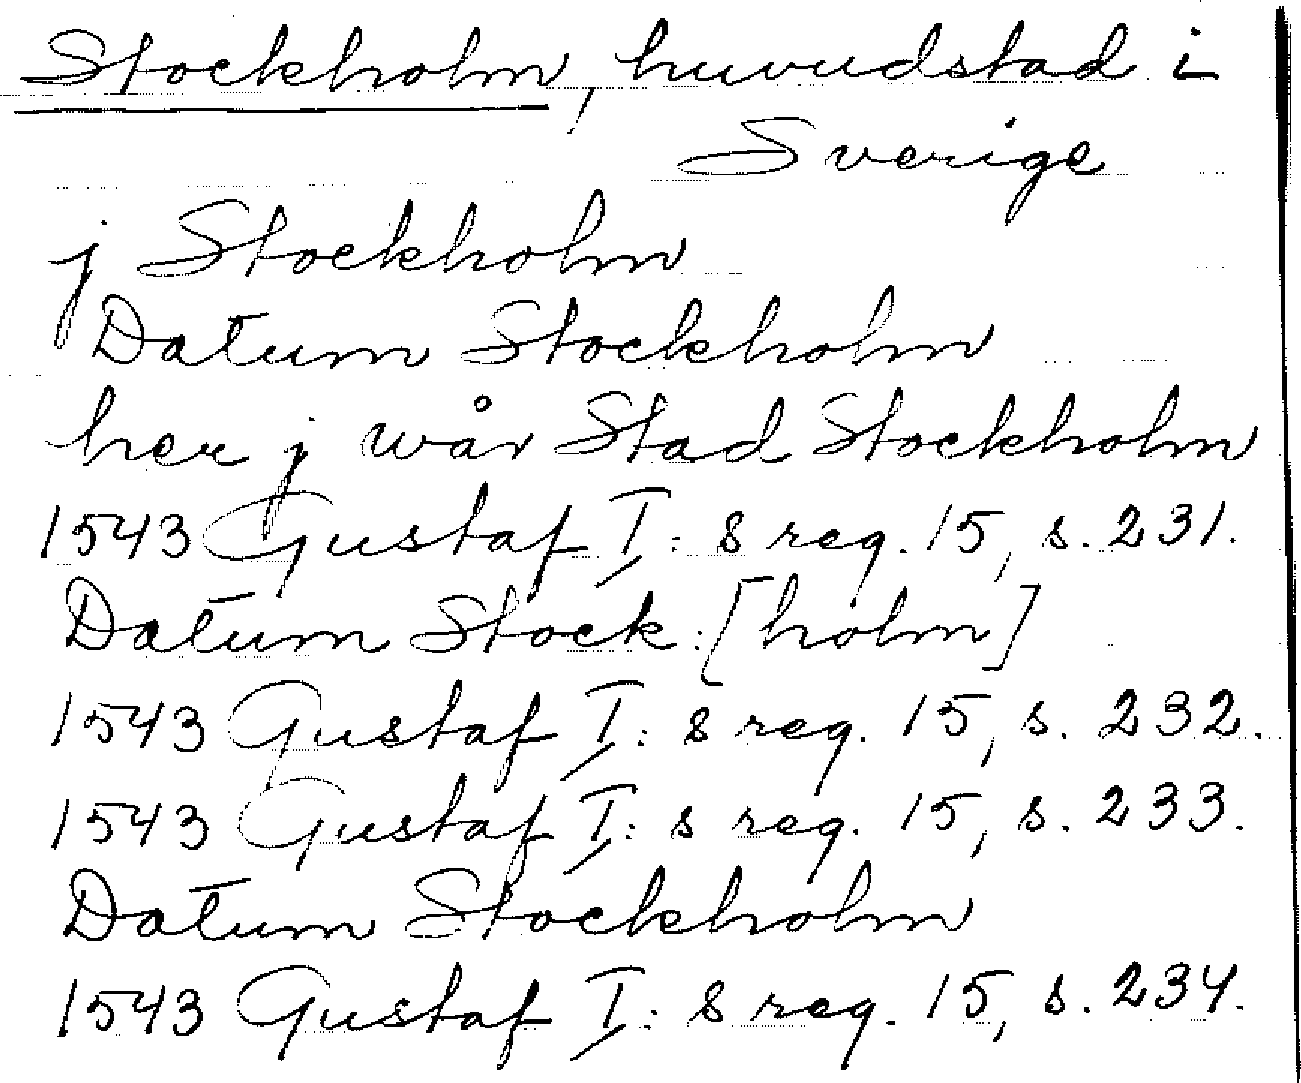 Stockholm, huvudstad i
Sverige
j Stockholm
Datum Stockholm
her j wår Stad Stockholm
1543 Gustaf I: s reg. 15, s. 231.
Datum Stock:[holm]
1543 Gustaf I: s reg. 15, s. 232.
1543 Gustaf I: s reg. 15, s. 233.
Datum Stockholm
1543 Gustaf I: s reg. 15, s. 234.